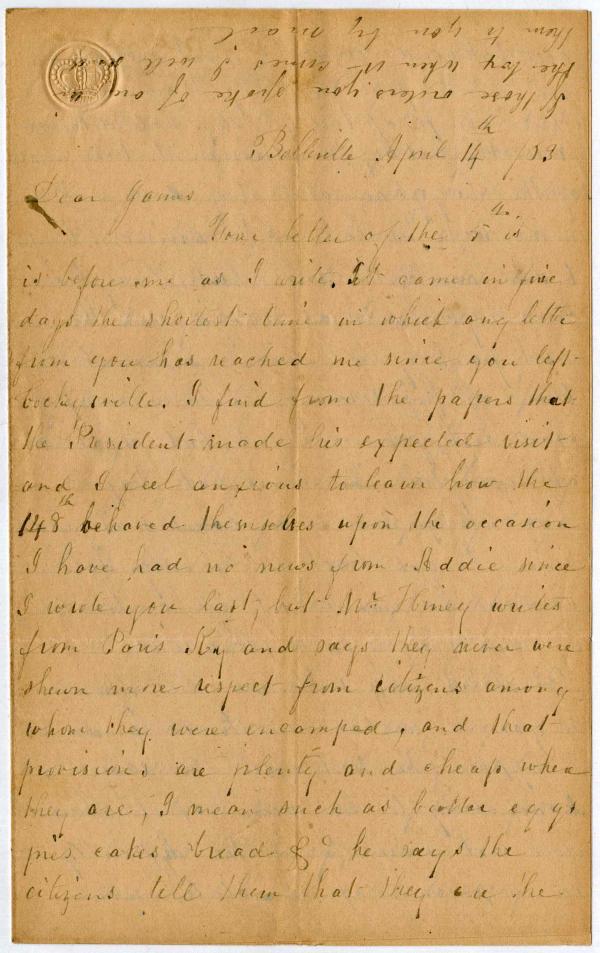 If those orders you spoke of are in
the box when it comes I will send
them to you by mail
Belleville April 14th /63
Dear James
Your letter of the 5th is
is before me as I write. It came in five
days the shortest time in which any letter
from you has reached me since you left
Cockeysville. I find from the papers that
the President made his expected visit
and I feel anxious to learn how the
148th behaved themselves upon the occasion
I have had no news from Addie since
I wrote you last, but Mr. writes
from Paris Ky and says they never were
shewn more respect from citizens among
whom they were encamped, and that
provisions are plenty and cheap where
they are, I mean such as butter eggs
pies cakes bread &c he says the
citizens tell them that they are the